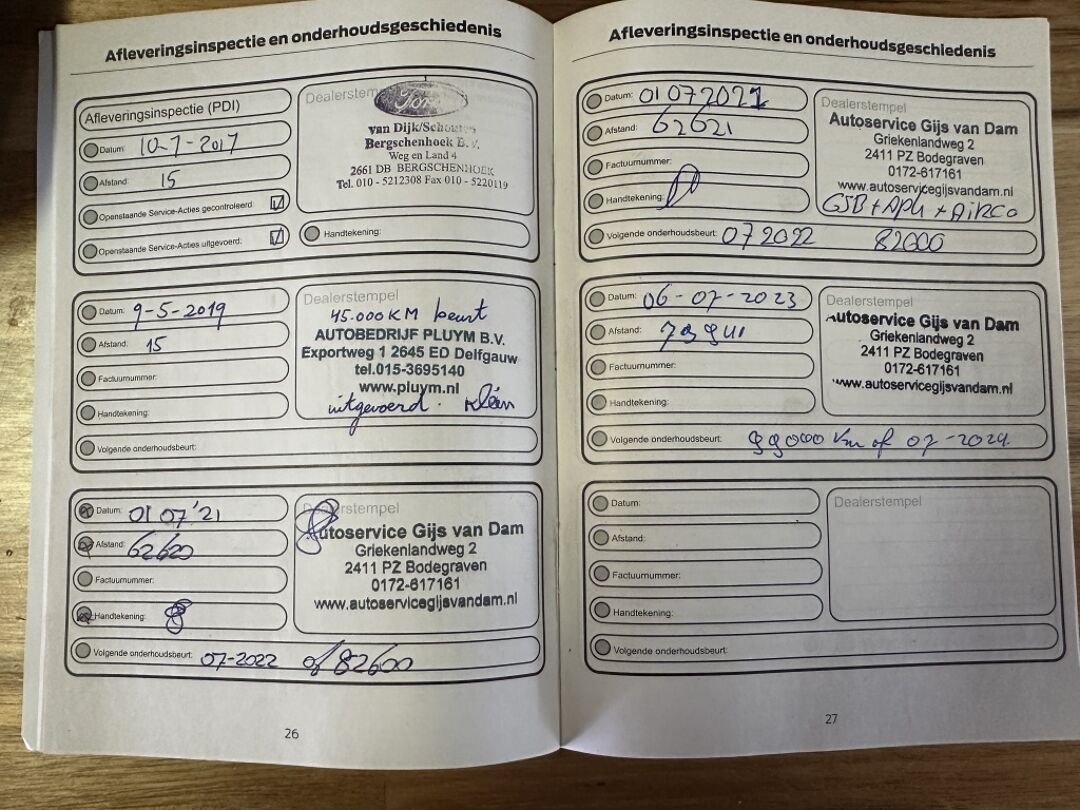 Afleveringsinspectie en onderhoudsgeschiedenis
Afleveringsinspectie (PDI)
Datum: 10-7-2017
Afstand: 15
Openstaande Service-Acties gecontroleerd
Openstaande Service-Acties uitgevoerd:
Dealerstempel
Ford
van Dijk/Schouten
Bergschenhoek B.V.
Weg en Land 4
2661 DB BERGSCHENHOEK
Tel. 010 - 5212308 Fax 010 - 5220119
Handtekening:
Datum: 9-5-2019
Afstand: 15
Factuurnummer:
Handtekening:
Volgende onderhoudsbeurt:
Dealerstempel
45.000 KM beurt
AUTOBEDRIJF PLUYM B.V.
Exportweg 1 2645 ED Delfgauw
tel.015-3695140
www.pluym.nl
uitgevoerd. Klein
Datum: 01 07 '21
Afstand: 62620
Factuurnummer:
Handtekening:
Volgende onderhoudsbeurt: 07-2022 of 82600
Dealerstempel
Autoservice Gijs van Dam
Griekenlandweg 2
2411 PZ Bodegraven
0172-617161
www.autoservicegijsvandam.nl
26
Afleveringsinspectie en onderhoudsgeschiedenis
Datum: 01 07 2021
Afstand: 62621
Factuurnummer:
Handtekening:
Volgende onderhoudsbeurt: 07 2022 82600
Dealerstempel
Autoservice Gijs van Dam
Griekenlandweg 2
2411 PZ Bodegraven
0172-617161
www.autoservicegijsvandam.nl
GSB + APK + AiRCo
Datum: 06-07-2023
Afstand:
Factuurnummer:
Handtekening:
Volgende onderhoudsbeurt: km of 07-2024.
Dealerstempel
Autoservice Gijs van Dam
Griekenlandweg 2
2411 PZ Bodegraven
0172-617161
www.autoservicegijsvandam.nl
Datum:
Afstand:
Factuurnummer:
Handtekening:
Volgende onderhoudsbeurt:
Dealerstempel
27